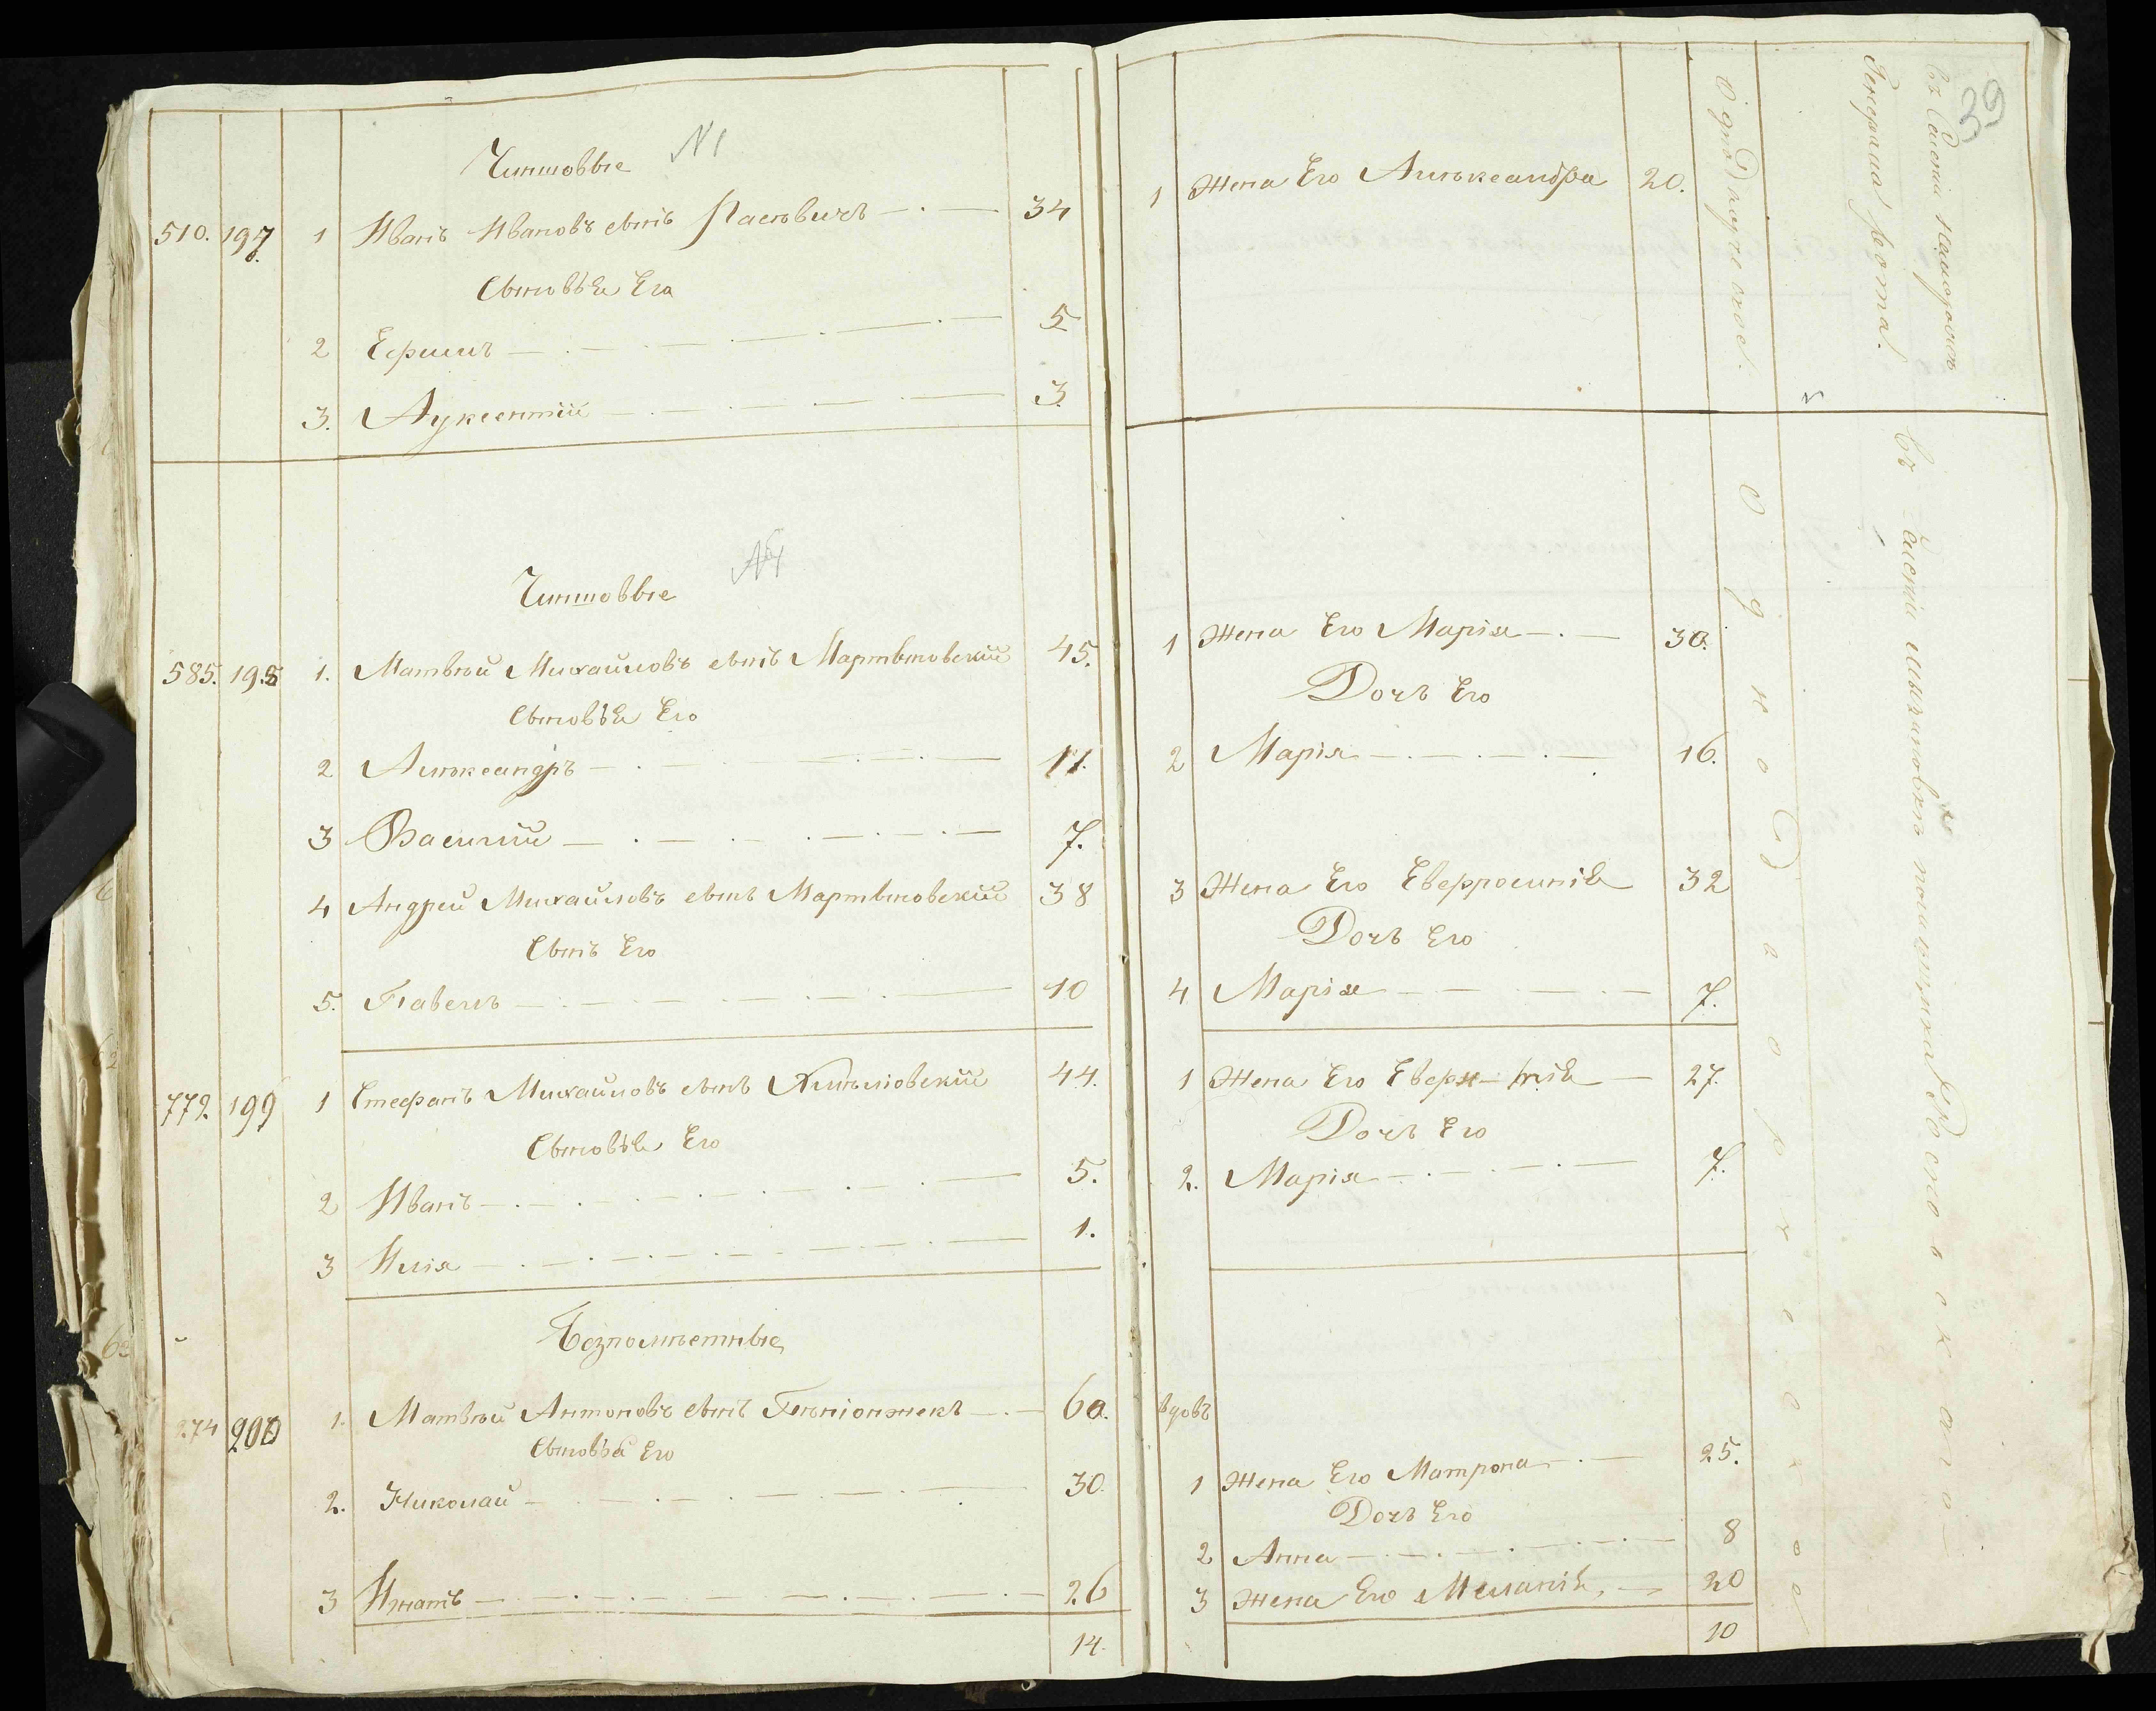 Чиншовые N1
510. 197. 1 Иванъ Ивановъ сынъ Пасевичъ 34
Сыновья Его
2 Ефимъ 5
3. Авксентій 3.
Чиншовые
585. 198 1. Матвѣй Михайловъ сынъ Мартыновскій 45.
Сыновья Его
2 Алѣксандръ 11.
3 Василій 7.
4 Андрей Михайловъ сынъ Мартыновскій 38
Сынъ Его
5. Павелъ 10
772. 199 1 Стефанъ Михайловъ сынъ 44.
Сыновья Его
2 Иванъ 5.
3 Илія 1.
Безпомѣстные
274 200 1. Матвѣй Антоновъ сынъ 60.
Сыновья Его
2. Николай 30.
3 Игнатъ 26
14.
39
1 Жена Его Алѣксандра 20.
Однодворческое.
Генерала
1 Жена Его Марія 30.
Дочь Его
2 Марія 16.
3 Жена Его Евфросинія 32
Дочь Его
4 Марія 7.
1 Жена Его 27.
Дочь Его
2. Марія 7.
вдовъ
1 Жена Его Матрона 25.
Дочь Его
2 Анна 8
3 Жена Его Меланія 20
10
въ помѣщика